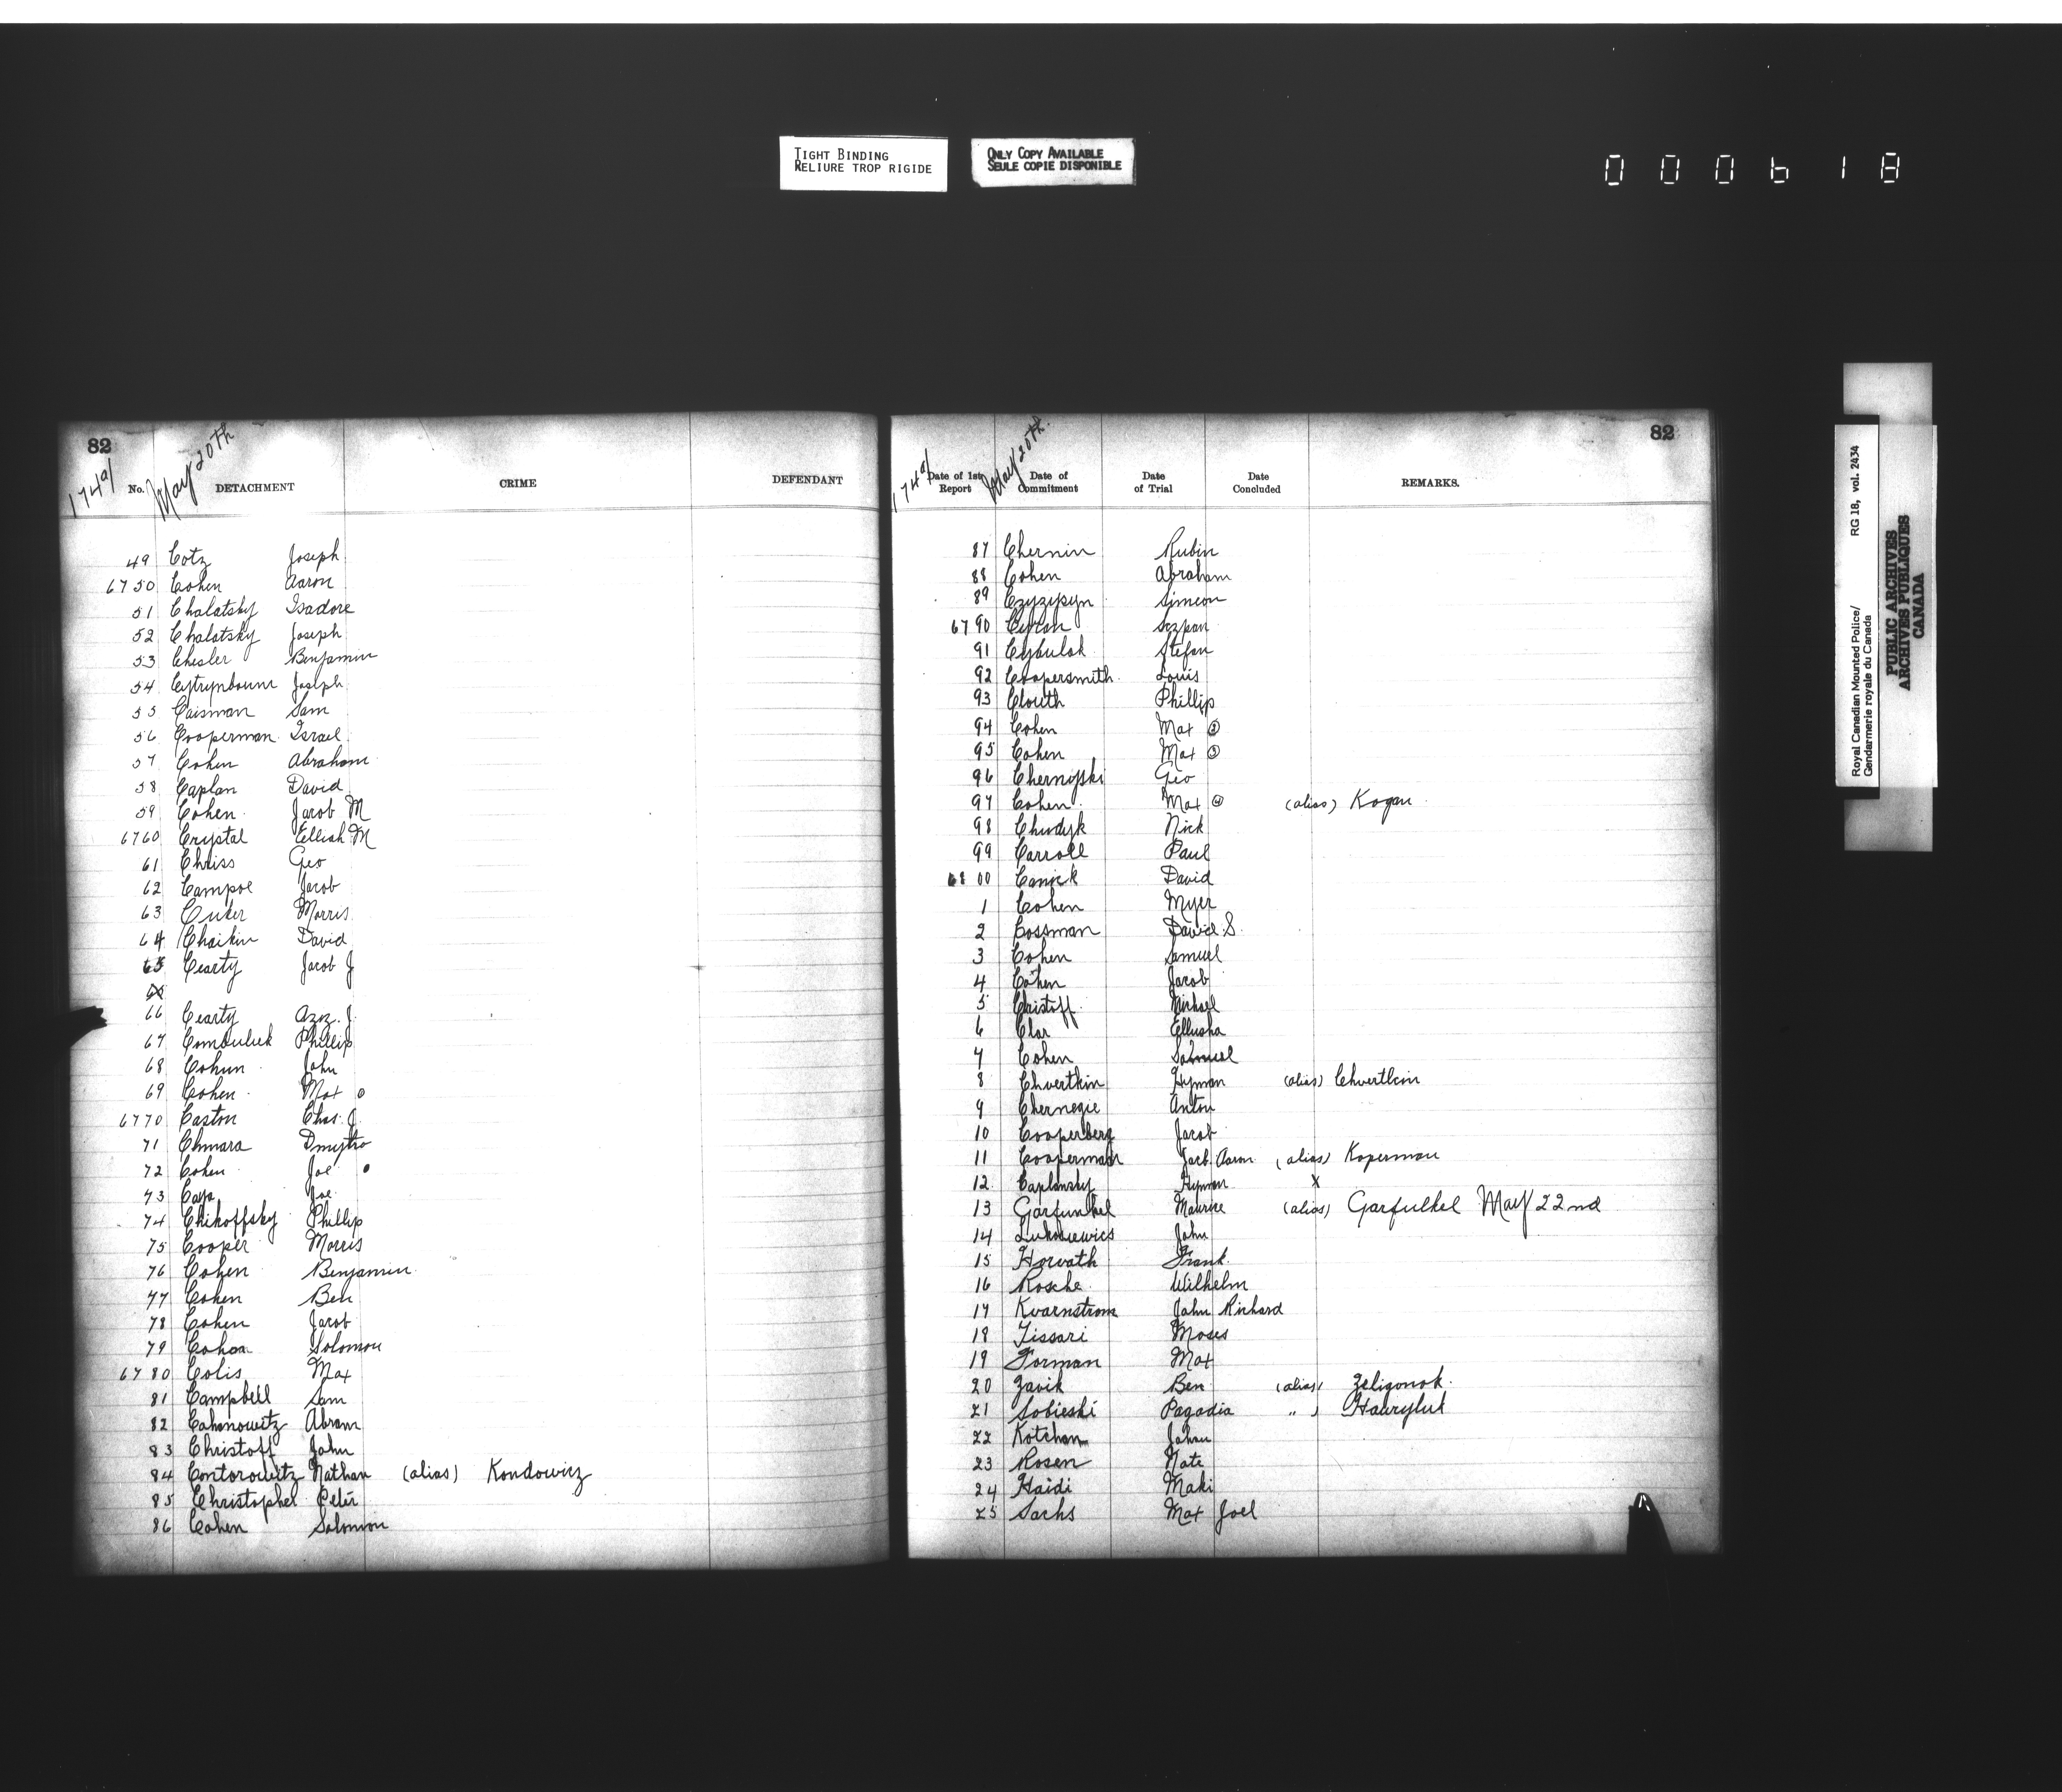 TIGHT BINDING
RELIURE TROP RIGIDE
ONLY COPY AVAILABLE
SEULE COPIE DISPONIBLE
000618
82
174a/ May 20th
No. DETACHMENT CRIME DEFENDANT
49 Cotz Joseph
6750 Cohen Aaron
51 Chalatsky Isadore
52 Chalatsky Joseph
53 Chesler Benjamin
54 Cytrynbourn Joseph
55 Caisman Sam
56 Cooperman Israel
57 Cohen Abraham
58 Caplan David
59 Cohen Jacob M
6760 Crystal Elliah M
61 Chriss Geo
62 Campoe Jacob
63 Cuker Morris
64 Chaikin David
65 Cearty Jacob J
66 Cearty Aziz. J.
67 Phillip
68 Cohun John
69 Cohen Max
6770 Caston Chas. J.
71 Chmara Dmytro
72 Cohen Joe
73 Cap Joe
74 Chikoffsky Phillip
75 Cooper Morris
76 Cohen Benjamin
77 Cohen Ben
78 Cohen Jacob
79 Cohoa Solomon
6780 Colis Max
81 Campbell Sam
82 Cahanowitz Abram
83 Christoff John
84 Contorowitz Nathan (alias) Kondowicz
85 Christophel Peter
86 Cohen Solomon
82
174a/ May 20th.
Date of 1st Report Date of Commitment Date of Trial Date Concluded REMARKS.
87 Chernin Rubin
88 Cohen Abraham
89 Czyzypyn Simeon
6790 Ceyran Sczpan
91 Cybulak Stefan
92 Coopersmith Louis
93 Clouth Phillip
94 Cohen Max ②
95 Cohen Max ③
96 Chernyski Geo
97 Cohen Max ④ (alias) Kogan
98 Chudyk Nick
99 Carroll Paul
6800 Canick David
1 Cohen Myer
2 Cossman David S.
3 Cohen Samuel
4 Cohen Jacob
5 Christoff Michael
6 Clar Ellusha
7 Cohen Samuel
8 Chvertkin Hyman (alias) Chvertkin
9 Chernegie Anton
10 Cooperberg Jacob
11 Cooperman Jacb. Aaron (alias) Koperman
12 Caplansky Hyman X
13 Garfunkel Maurice (alias) Garfulkel May 22nd
14 Lukasiewics John
15 Horvath Frank
16 Rosche Wilhelm
17 Kvarnstrom John Richard
18 Tissari Moses
19 Forman Max
20 Zavik Ben (alias) Zeligonok.
21 Sobieski Pagadia " ) Hawryluk
22 Kotchan John
23 Rosen Nate
24 Haidi Maki
25 Sachs Max Joel
Royal Canadian Mounted Police/ RG 18, vol. 2434
Gendarmerie royale du Canada
PUBLIC ARCHIVES
ARCHIVES PUBLIQUES
CANADA